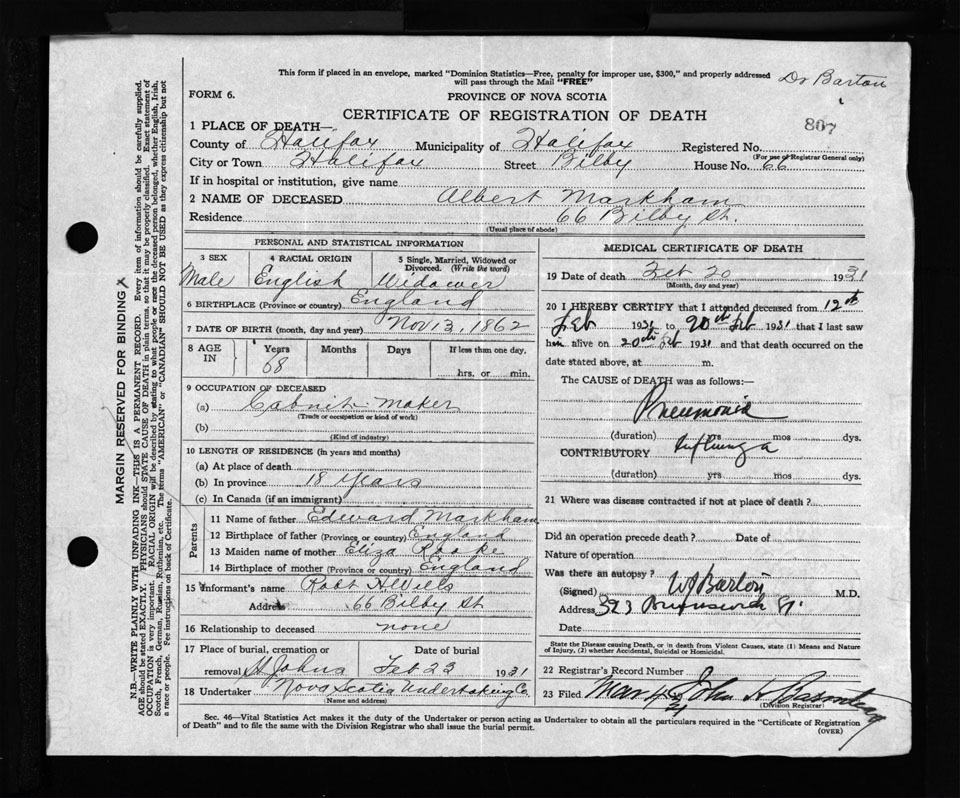 This form if placed in an envelope, marked "Dominion Statistics—Free, penalty for improper use, $300," and properly addressed
will pass through the Mail "FREE"
Dr Barton
FORM 6.
PROVINCE OF NOVA SCOTIA
CERTIFICATE OF REGISTRATION OF DEATH
807
1 PLACE OF DEATH—
County of Halifax Municipality of Halifax Registered No.
(For use of Registrar General only)
City or Town Halifax Street Bilby House No. 66
If in hospital or institution, give name
2 NAME OF DECEASED Albert Markham
Residence 66 Bilby St.
(Usual place of abode)
PERSONAL AND STATISTICAL INFORMATION
3 SEX 4 RACIAL ORIGIN 5 Single, Married, Widowed or
Divorced. (Write the word)
Male English Widower
6 BIRTHPLACE (Province or country) England
7 DATE OF BIRTH (month, day and year) Nov 13, 1862
8 AGE IN Years Months Days If less than one day,
68 hrs. or min.
9 OCCUPATION OF DECEASED
(a) Cabnit-maker
(Trade or occupation or kind of work)
(b)
(Kind of industry)
10 LENGTH OF RESIDENCE (in years and months)
(a) At place of death
(b) In province 18 years
(c) In Canada (if an immigrant)
Parents
11 Name of father Edward Markham
12 Birthplace of father (Province or country) England
13 Maiden name of mother Eliza Rooke
14 Birthplace of mother (Province or country) England
15 Informant's name Robt H Wills
Address 66 Bilby St
16 Relationship to deceased none
17 Place of burial, cremation or Date of burial
removal St Johns Feb 23 1931
18 Undertaker Nova Scotia Undertaking Co
(Name and address)
MEDICAL CERTIFICATE OF DEATH
19 Date of death Feb 20 1931
(Month, day and year)
20 I HEREBY CERTIFY that I attended deceased from 12th
Feb 1931 to 20th Feb 1931 that I last saw
him alive on 20th Feb 1931 and that death occurred on the
date stated above, at m.
The CAUSE of DEATH was as follows:—
Pneumonia
(duration) yrs mos dys.
CONTRIBUTORY Influenza
(duration) yrs mos dys.
21 Where was disease contracted if not at place of death?
Did an operation precede death? Date of
Nature of operation
Was there an autopsy?
(Signed) W J Barton M.D.
Address 323 Brunswick St.
Date
State the Disease causing Death, or in death from Violent Causes, state (1) Means and Nature
of Injury, (2) whether Accidental, Suicidal or Homicidal.
22 Registrar's Record Number
23 Filed Mar 4 31 John H
(Division Registrar)
Sec. 46—Vital Statistics Act makes it the duty of the Undertaker or person acting as Undertaker to obtain all the particulars required in the "Certificate of Registration
of Death" and to file the same with the Division Registrar who shall issue the burial permit.
(OVER)
MARGIN RESERVED FOR BINDING
N.B.—WRITE PLAINLY WITH UNFADING INK—THIS IS A PERMANENT RECORD. Every item of information should be carefully supplied.
AGE should be stated EXACTLY. PHYSICIANS should STATE CAUSE OF DEATH in plain terms, so that it may be properly classified. Exact statement of
OCCUPATION is very important. RACIAL ORIGIN will be described by stating to what people or race the deceased person belonged, whether English, Irish,
Scotch, French, German, Russian, Ruthenian, etc. The terms "AMERICAN" or "CANADIAN" SHOULD NOT BE USED as they express citizenship but not
a race or people. See instructions on back of Certificate.